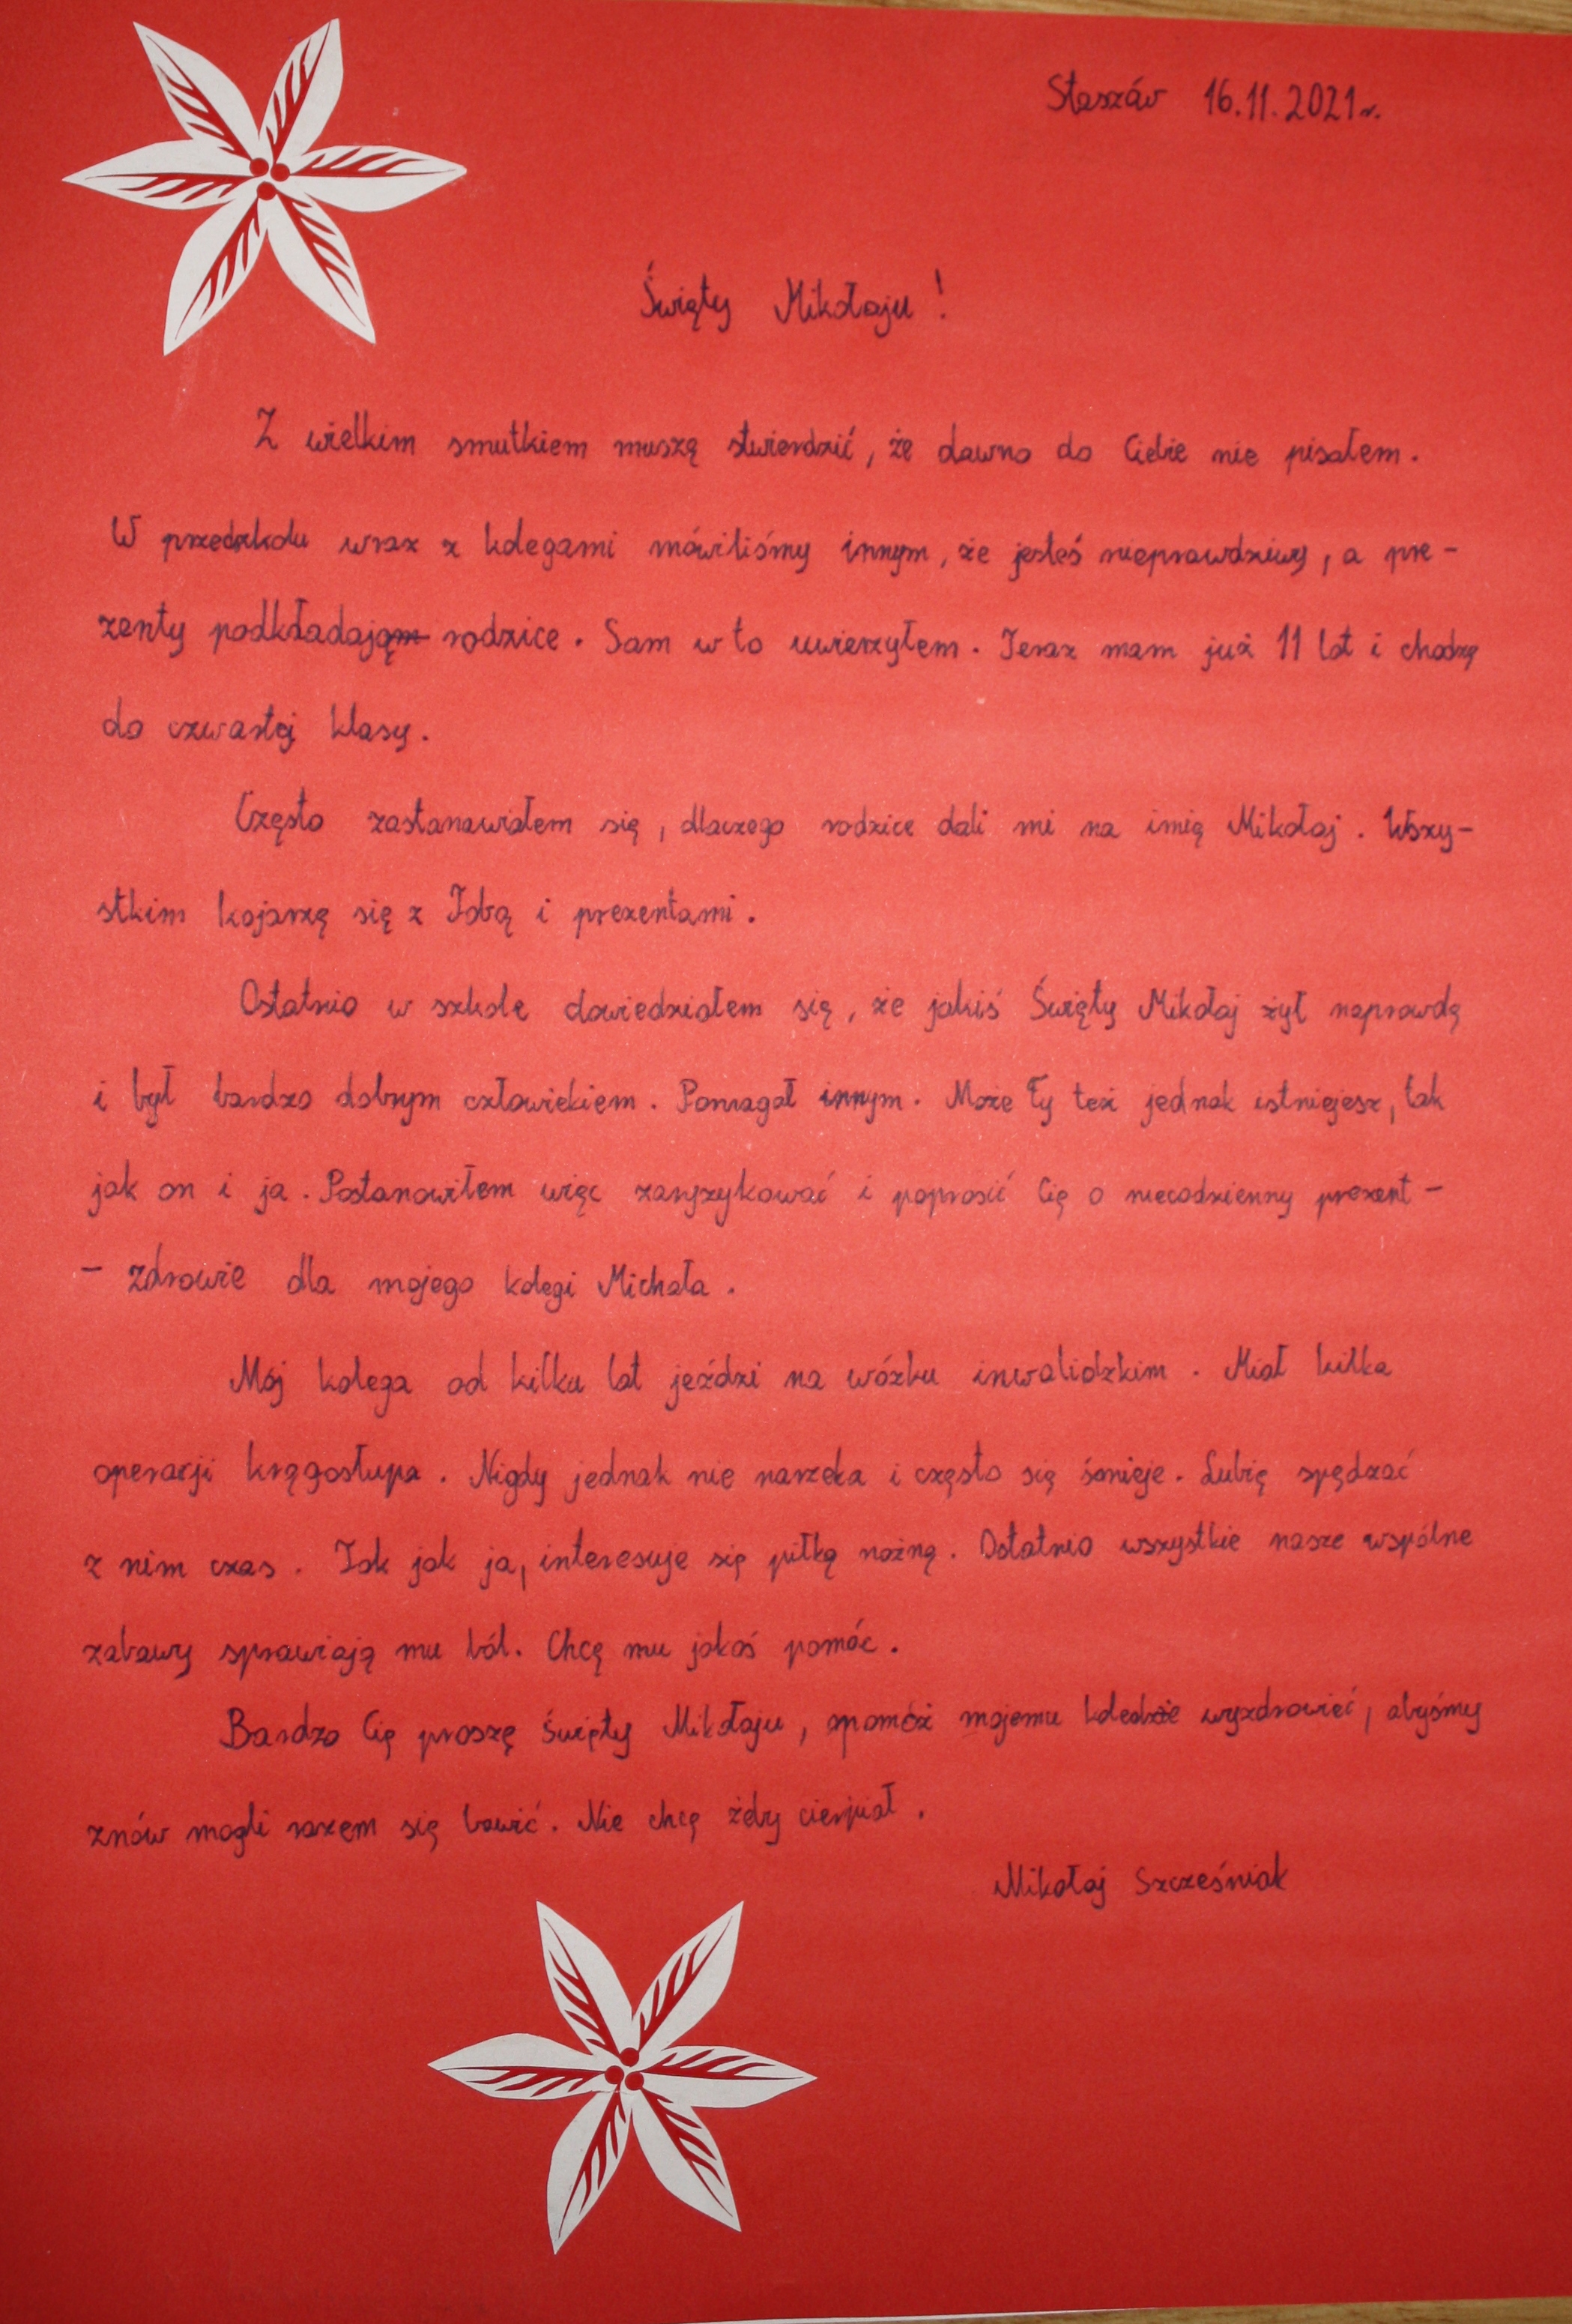 Staszów 16.11.2021r.
Święty Mikołaju!
Z wielkim smutkiem muszę stwierdzić, że dawno do Ciebie nie pisałem.
W przedszkolu wraz z kolegami mówiliśmy innym, że jesteś nieprawdziwy, a pre-
zenty podkładają rodzice. Sam w to uwierzyłem. Teraz mam już 11 lat i chodzę
do czwartej klasy.
Często zastanawiałem się, dlaczego rodzice dali mi na imię Mikołaj. Wszy-
stkim kojarzę się z Tobą i prezentami.
Ostatnio w szkole dowiedziałem się, że jakiś Święty Mikołaj żył naprawdę
i był bardzo dobrym człowiekiem. Pomagał innym. Może Ty też jednak istniejesz, tak
jak on i ja. Postanowiłem więc zaryzykować i poprosić Cię o niecodzienny prezent -
- zdrowie dla mojego kolegi Michała.
Mój kolega od kilku lat jeździ na wózku inwalidzkim. Miał kilka
operacji kręgosłupa. Nigdy jednak nie narzeka i często się śmieje. Lubię spędzać
z nim czas. Tak jak ja, interesuje się piłką nożną. Ostatnio wszystkie nasze wspólne
zabawy sprawiają mu ból. Chcę mu jakoś pomóc.
Bardzo Cię proszę Święty Mikołaju, pomóż mojemu koledze wyzdrowieć, abyśmy
znów mogli razem się bawić. Nie chcę żeby cierpiał.
Mikołaj Szcześniak